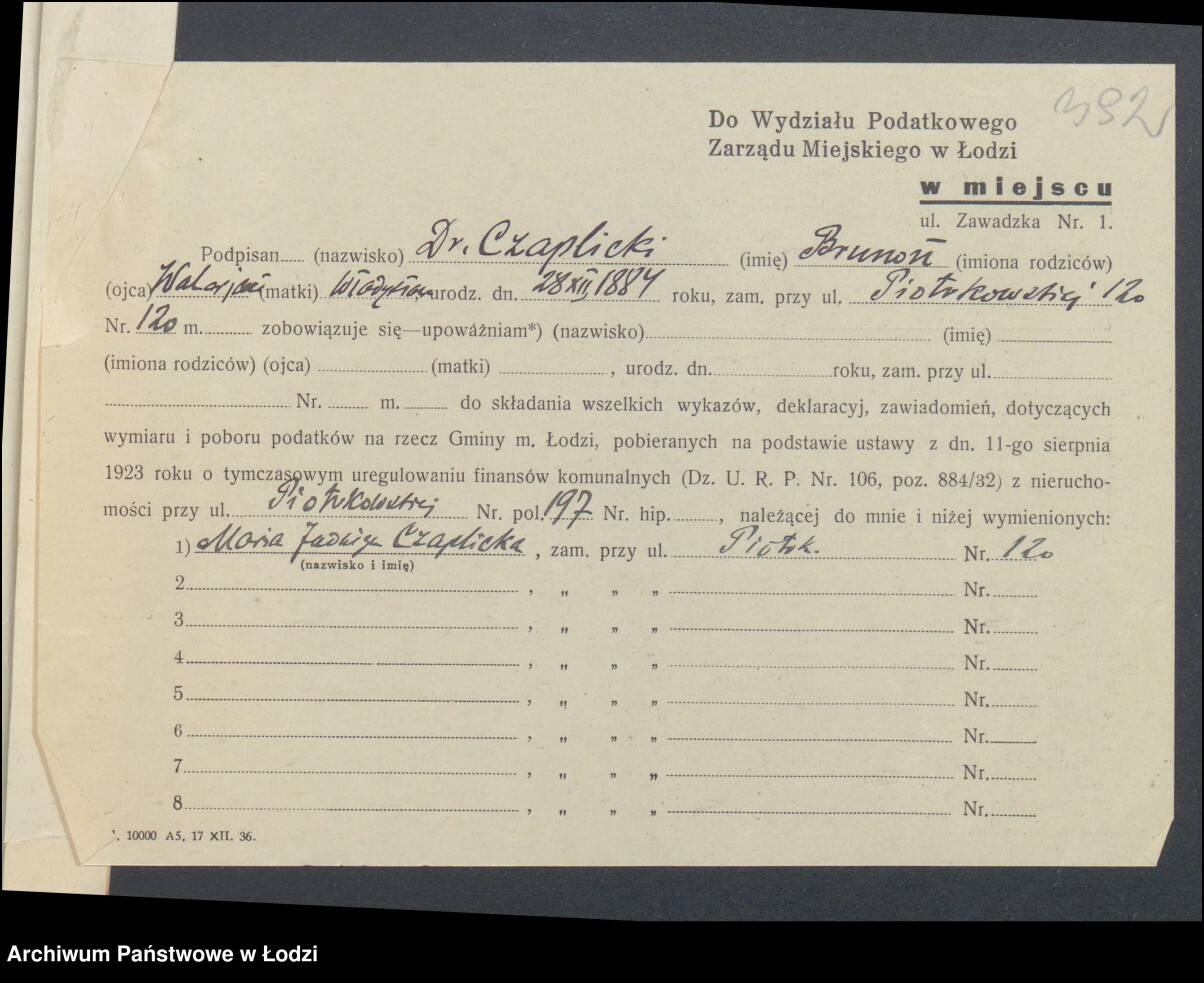 392
Do Wydziału Podatkowego
Zarządu Miejskiego w Łodzi
w miejscu
ul. Zawadzka Nr. 1.
Podpisan...... (nazwisko) Dr. Czaplicki (imię) Brunon (imiona rodziców)
(ojca) Walerjan (matki) Władysława urodz. dn. 28 XII 1884 roku, zam. przy ul. Piotrkowskiej 120
Nr. 120 m. ............ zobowiązuje się—upoważniam*) (nazwisko) ............ (imię) ............
(imiona rodziców) (ojca) ............ (matki) ............, urodz. dn. ............ roku, zam. przy ul. ............
............ Nr. ......... m. ......... do składania wszelkich wykazów, deklaracyj, zawiadomień, dotyczących
wymiaru i poboru podatków na rzecz Gminy m. Łodzi, pobieranych na podstawie ustawy z dn. 11-go sierpnia
1923 roku o tymczasowym uregulowaniu finansów komunalnych (Dz. U. R. P. Nr. 106, poz. 884/32) z nierucho-
mości przy ul. Piotrkowskiej Nr. pol. 197 Nr. hip. ........., należącej do mnie i niżej wymienionych:
1) Maria Jadwiga Czaplicka, zam. przy ul. Piotrk. Nr. 120
(nazwisko i imię)
2 ............, „ „ „ ............ Nr. .........
3 ............, „ „ „ ............ Nr. .........
4 ............, „ „ „ ............ Nr. .........
5 ............, „ „ „ ............ Nr. .........
6 ............, „ „ „ ............ Nr. .........
7 ............, „ „ „ ............ Nr. .........
8 ............, „ „ „ ............ Nr. .........
10000 A5. 17 XII. 36.
Archiwum Państwowe w Łodzi